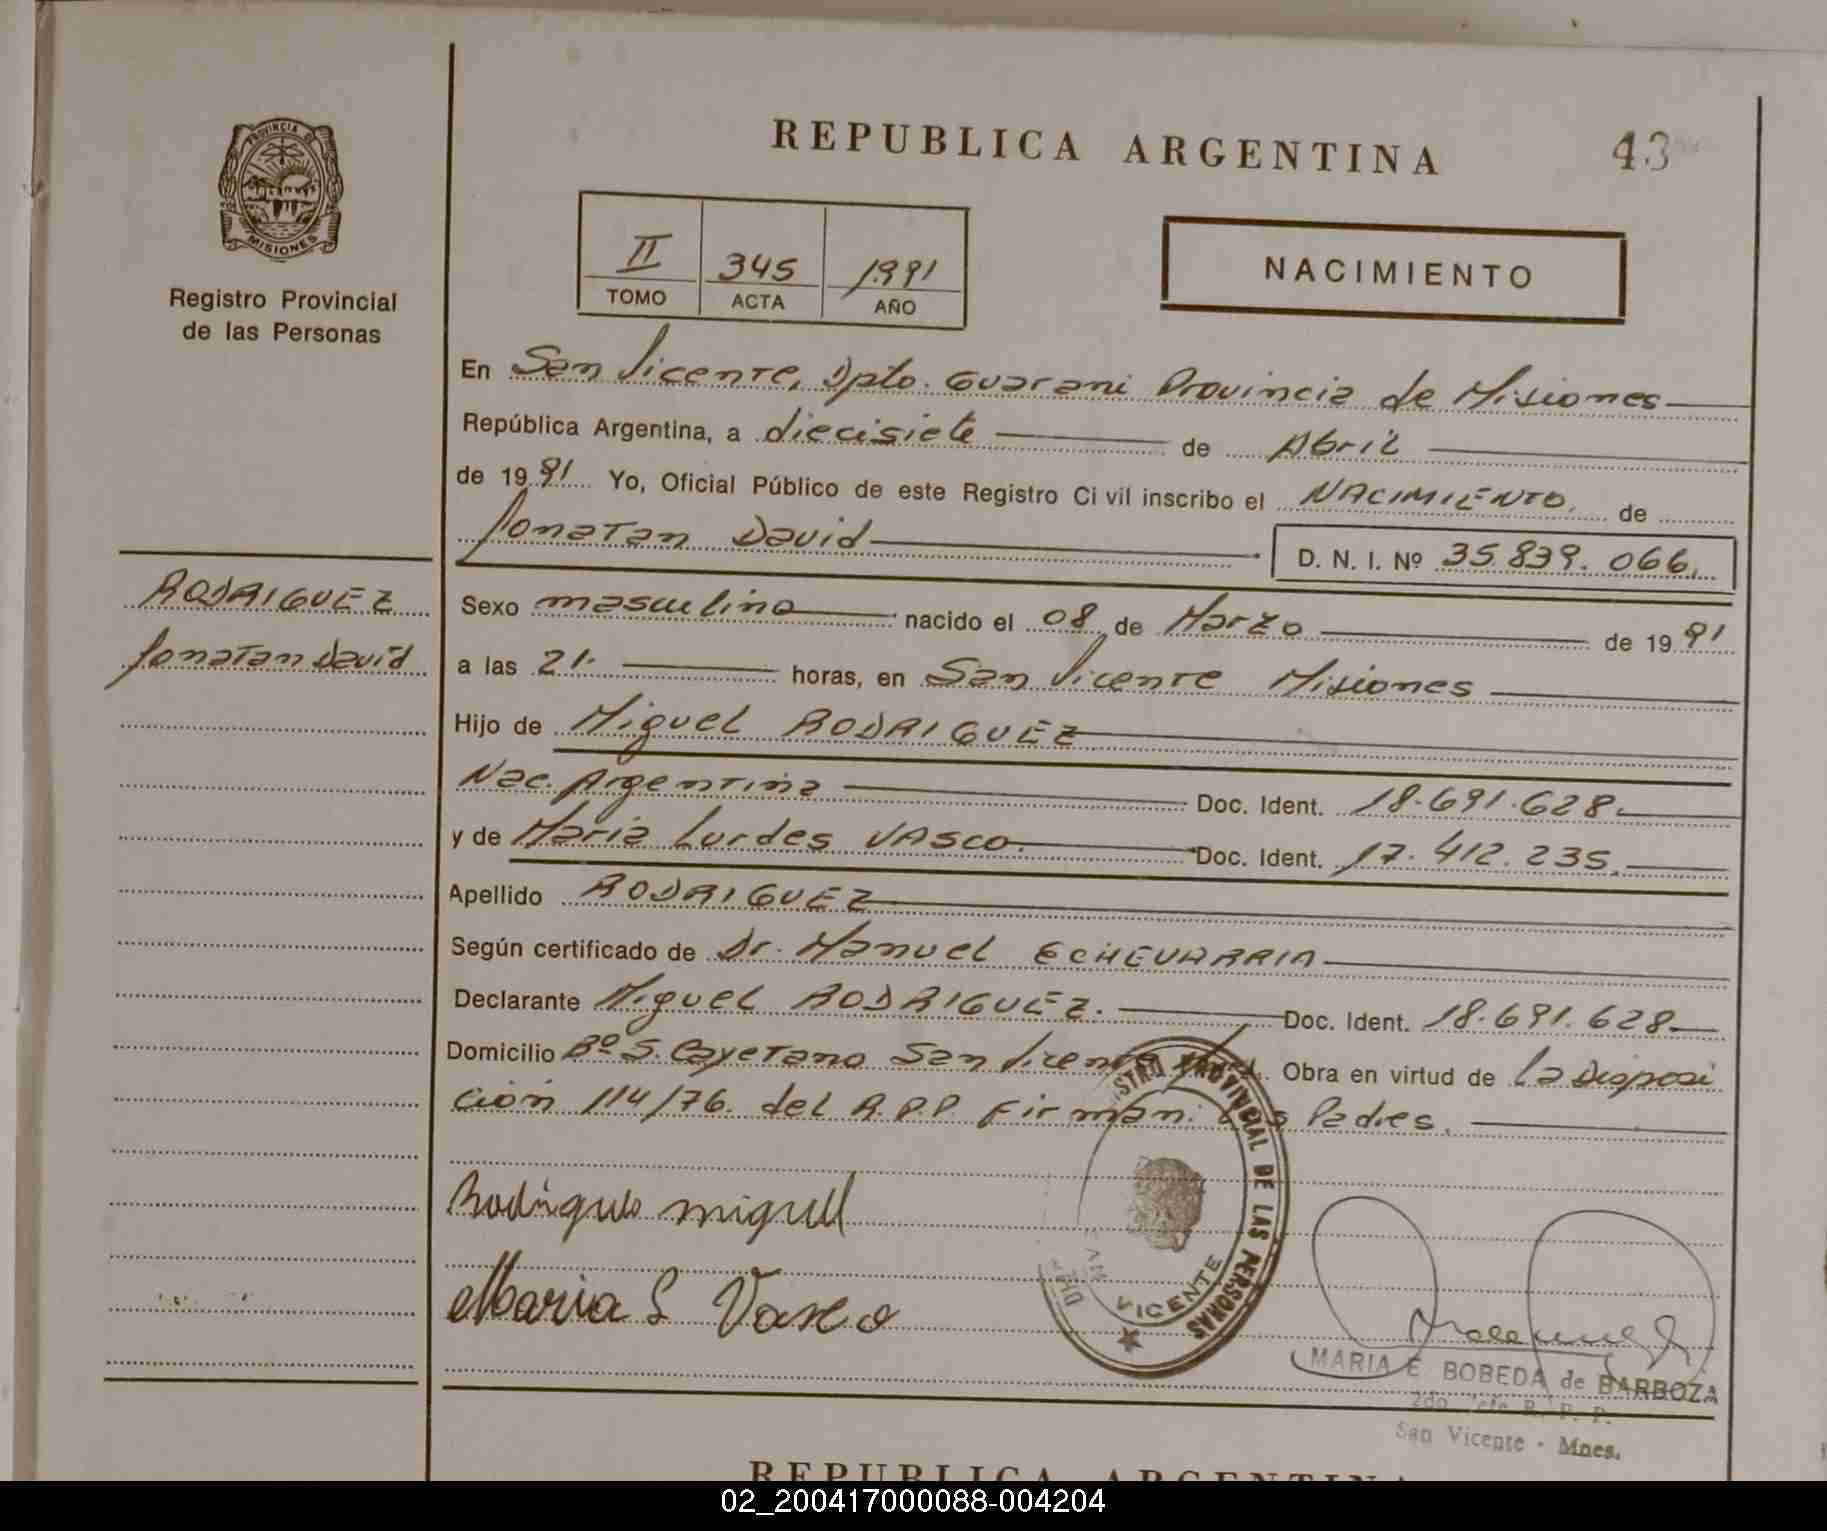 PROVINCIA DE
MISIONES
Registro Provincial
de las Personas
RODRIGUEZ
Jonatan David
REPUBLICA ARGENTINA
43
II 345 1991
TOMO ACTA AÑO
NACIMIENTO
En San Vicente, Dpto. Guarani Provincia de Misiones
República Argentina, a diecisiete de Abril
de 1991 Yo, Oficial Público de este Registro Civil inscribo el NACIMIENTO. de
Jonatan David D. N. I. Nº 35.839.066.
Sexo masculino nacido el 08 de Marzo de 1991
a las 21. horas, en San Vicente Misiones
Hijo de Miguel RODRIGUEZ
Nac. Argentina Doc. Ident. 18.691.628
y de Maria Lurdes VASCO. Doc. Ident. 17.412.235.
Apellido RODRIGUEZ
Según certificado de Dr. Manuel ECHEVARRIA
Declarante Miguel RODRIGUEZ. Doc. Ident. 18.691.628
Domicilio Bº S. Cayetano San Vicente Obra en virtud de La Disposi
ción 114/76. del R.P.P. Firman: Padres.
Rodriguez miguel
Maria L Vasco
PROVINCIAL DE LAS PERSONAS
VICENTE
MARIA E BOBEDA de BARBOZA
2do. Jefe R. P. P.
San Vicente - Mnes.
REPUBLICA ARGENTINA
02_200417000088-004204